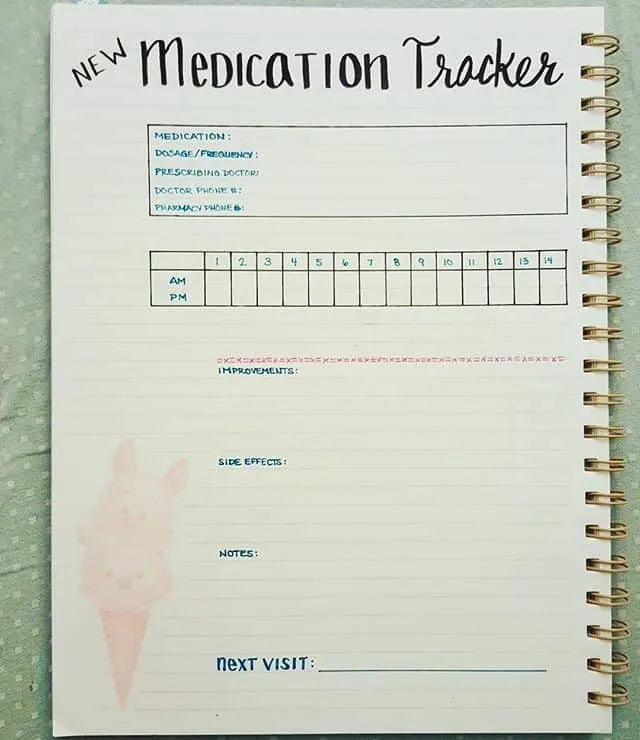 NEW MEDICATION Tracker
MEDICATION:
DOSAGE/FREQUENCY:
PRESCRIBING DOCTOR:
DOCTOR PHONE #:
PHARMACY PHONE #:
1 2 3 4 5 6 7 8 9 10 11 12 13 14
AM
PM
IMPROVEMENTS:
SIDE EFFECTS:
NOTES:
NEXT VISIT: